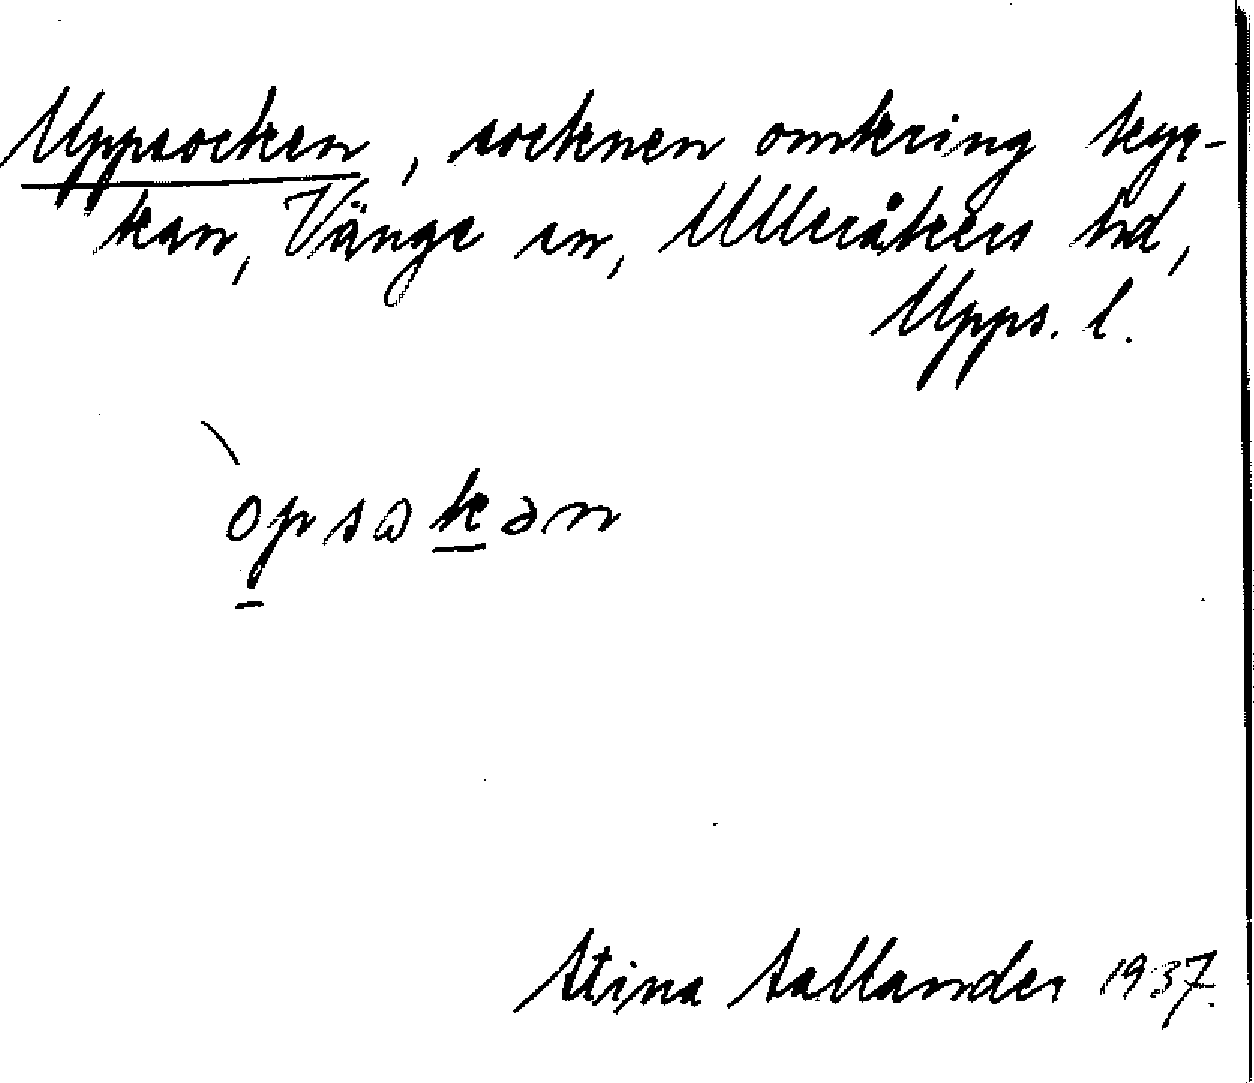 Uppsocken, socknen omkring kyr-
kan, Vänge sn, Ulleråkers hd,
Upps. l.
\
opsωkən
Stina Sallander 1937.